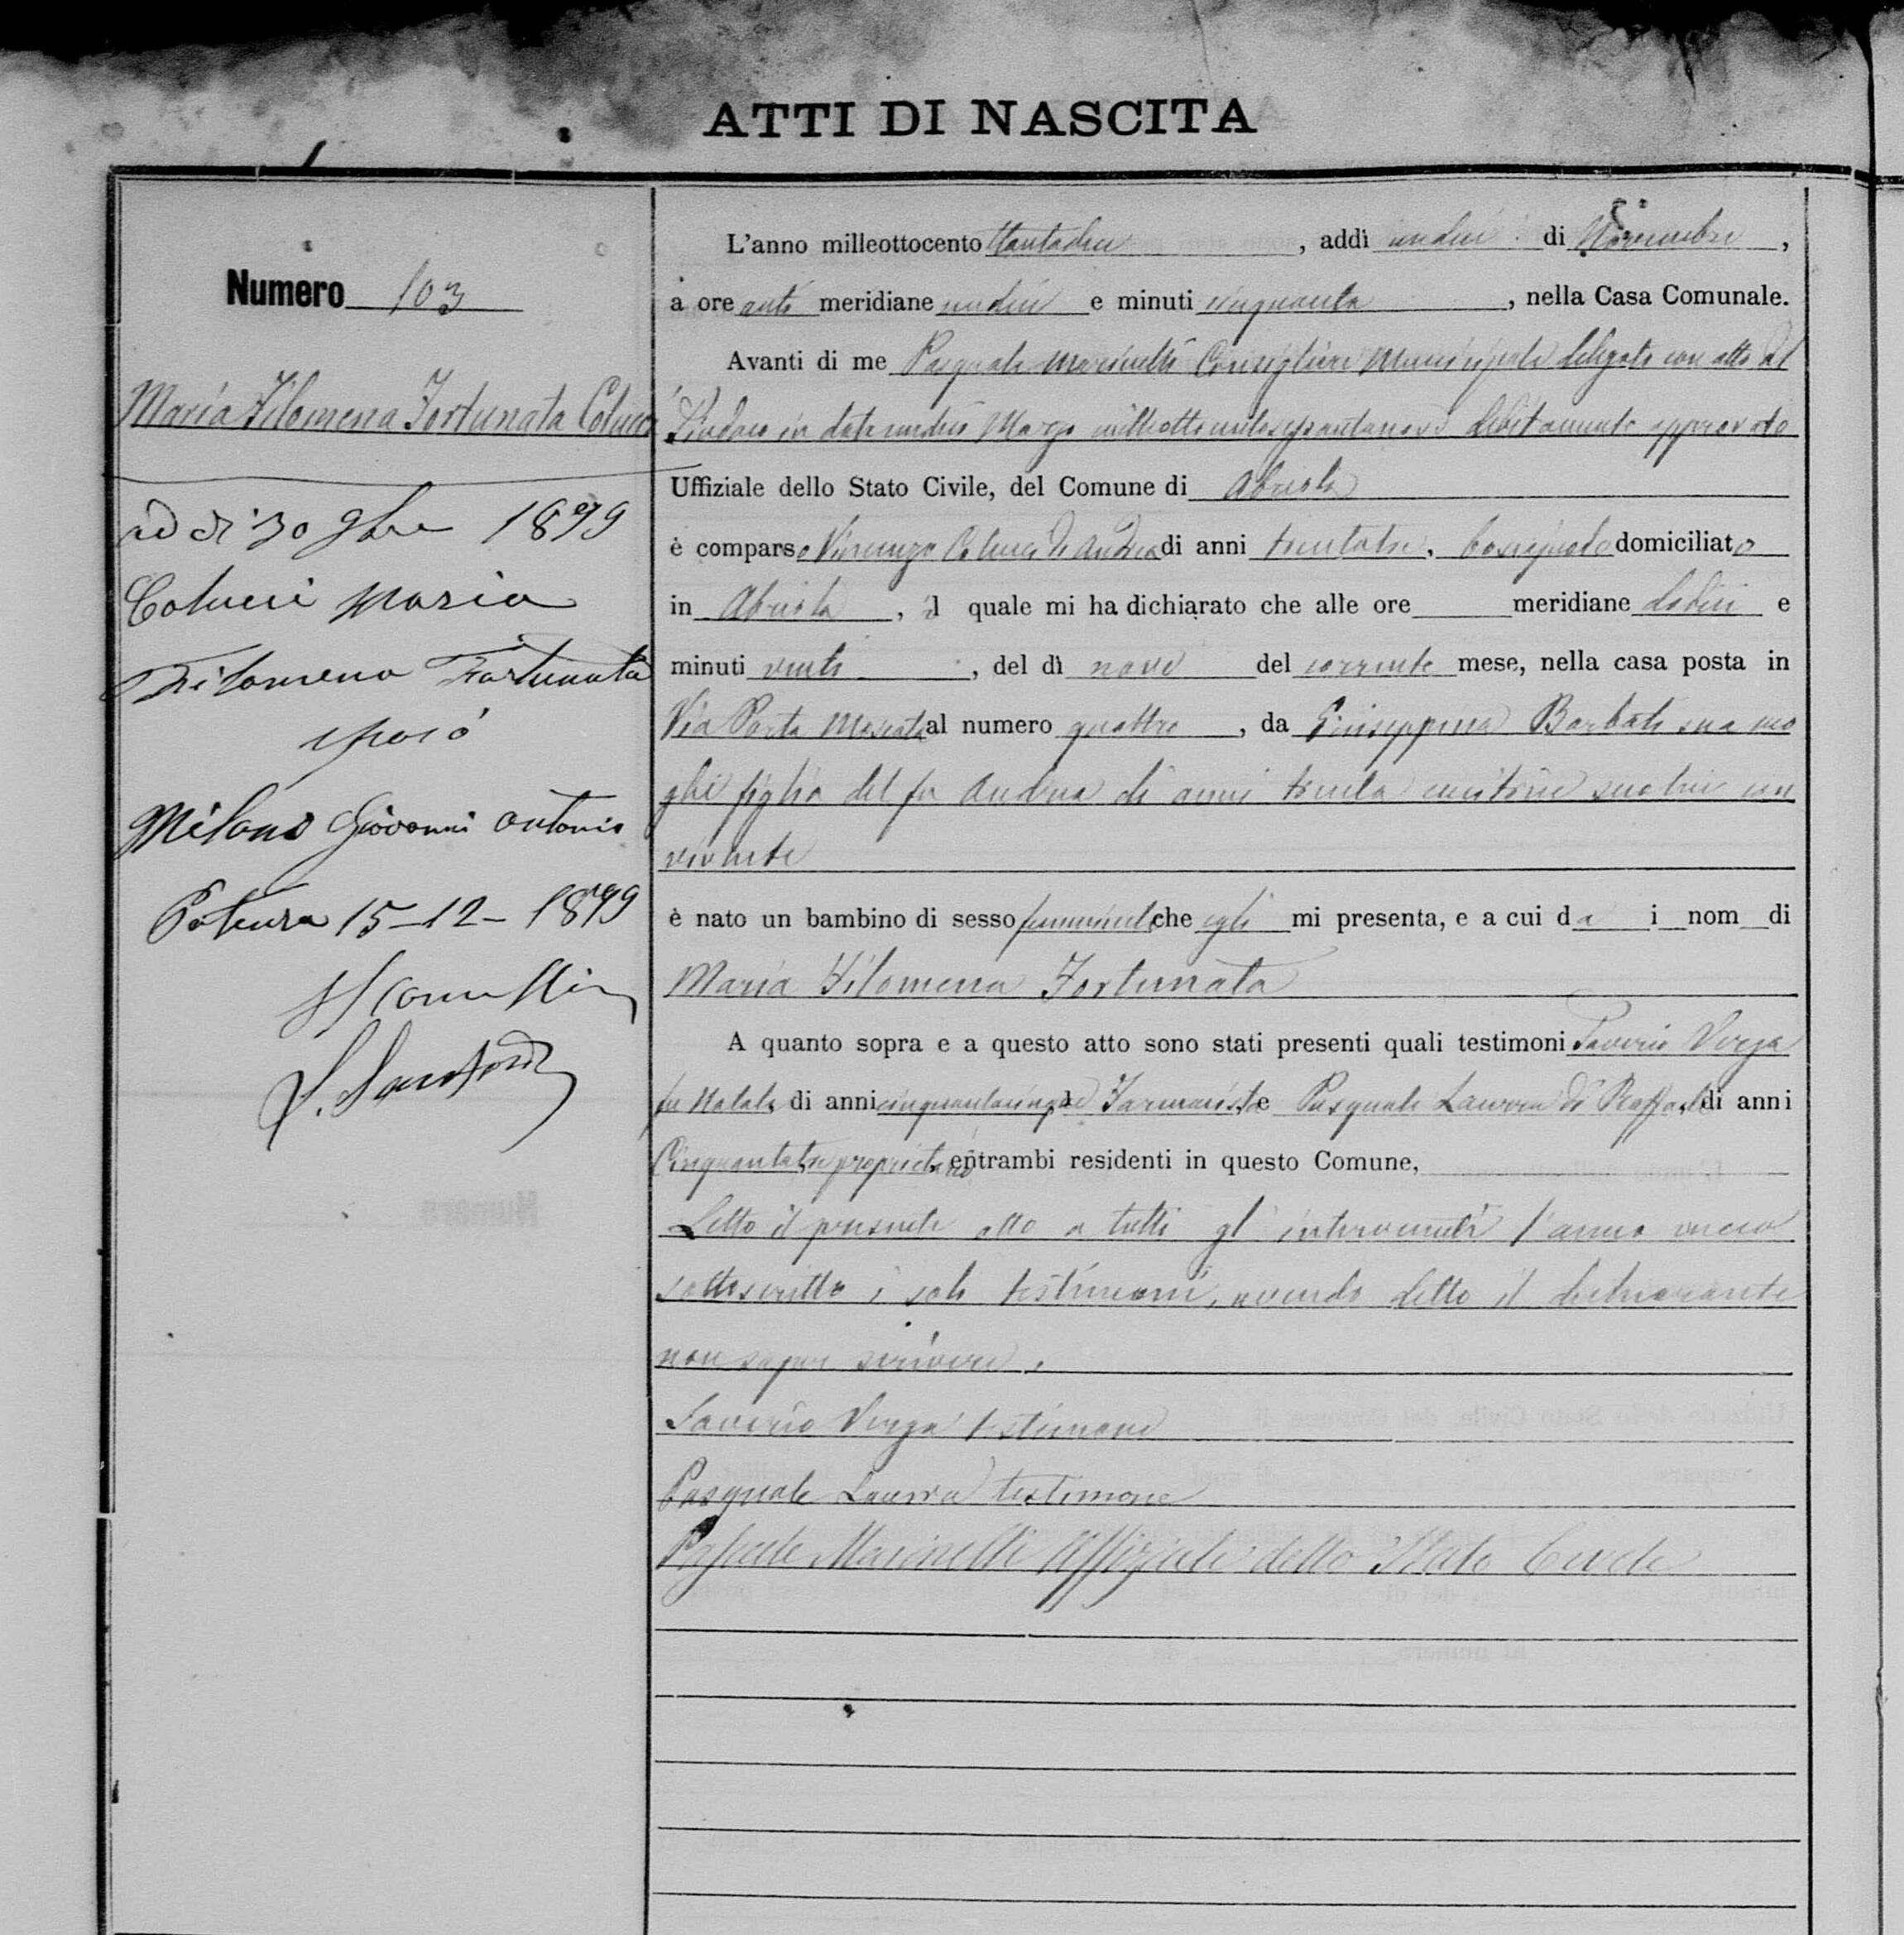 ATTI DI NASCITA
Numero 103
Maria Filomena Fortunata Colucci
addì 30 9bre 1899
Colucci Maria
Filomena Fortunata
sposò
Milano Giovanni Antonio
Potenza 15-12-1899
L'anno milleottocento ttantadue, addì undici di Novembre,
a ore anti meridiane undici e minuti cinquanta, nella Casa Comunale.
Avanti di me Pasquale Marinelli Consigliere Municipale delegato con atto del
Sindaco in data undici Marzo milleottocentosettantanove debitamente approvato
Uffiziale dello Stato Civile, del Comune di Abriola
è comparso Vincenzo Colucci di Andrea di anni trentatre, domiciliato
in Abriola, il quale mi ha dichiarato che alle ore meridiane dodici e
minuti venti, del dì nove del corrente mese, nella casa posta in
Via Porta al numero quattro, da Giuseppina Barbati sua mo
glie figlia del fu Andrea di anni trenta seco lui con
vivente
è nato un bambino di sesso femminile che egli mi presenta, e a cui da i nom di
Maria Filomena Fortunata
A quanto sopra e a questo atto sono stati presenti quali testimoni Saverio Verga
fu Natale, di anni cinquantacinque Farmacista e Pasquale Laurria di Raffaele, di anni
Cinquantatre proprietario entrambi residenti in questo Comune,
Letto il presente atto a tutti gl' intervenuti l'anno meco
sottoscritto i soli testimoni, avendo detto il dichiarante
non saper scrivere.
Saverio Verga testimone
Pasquale Laurria testimone
Pasquale Marinelli Uffiziale dello Stato Civile